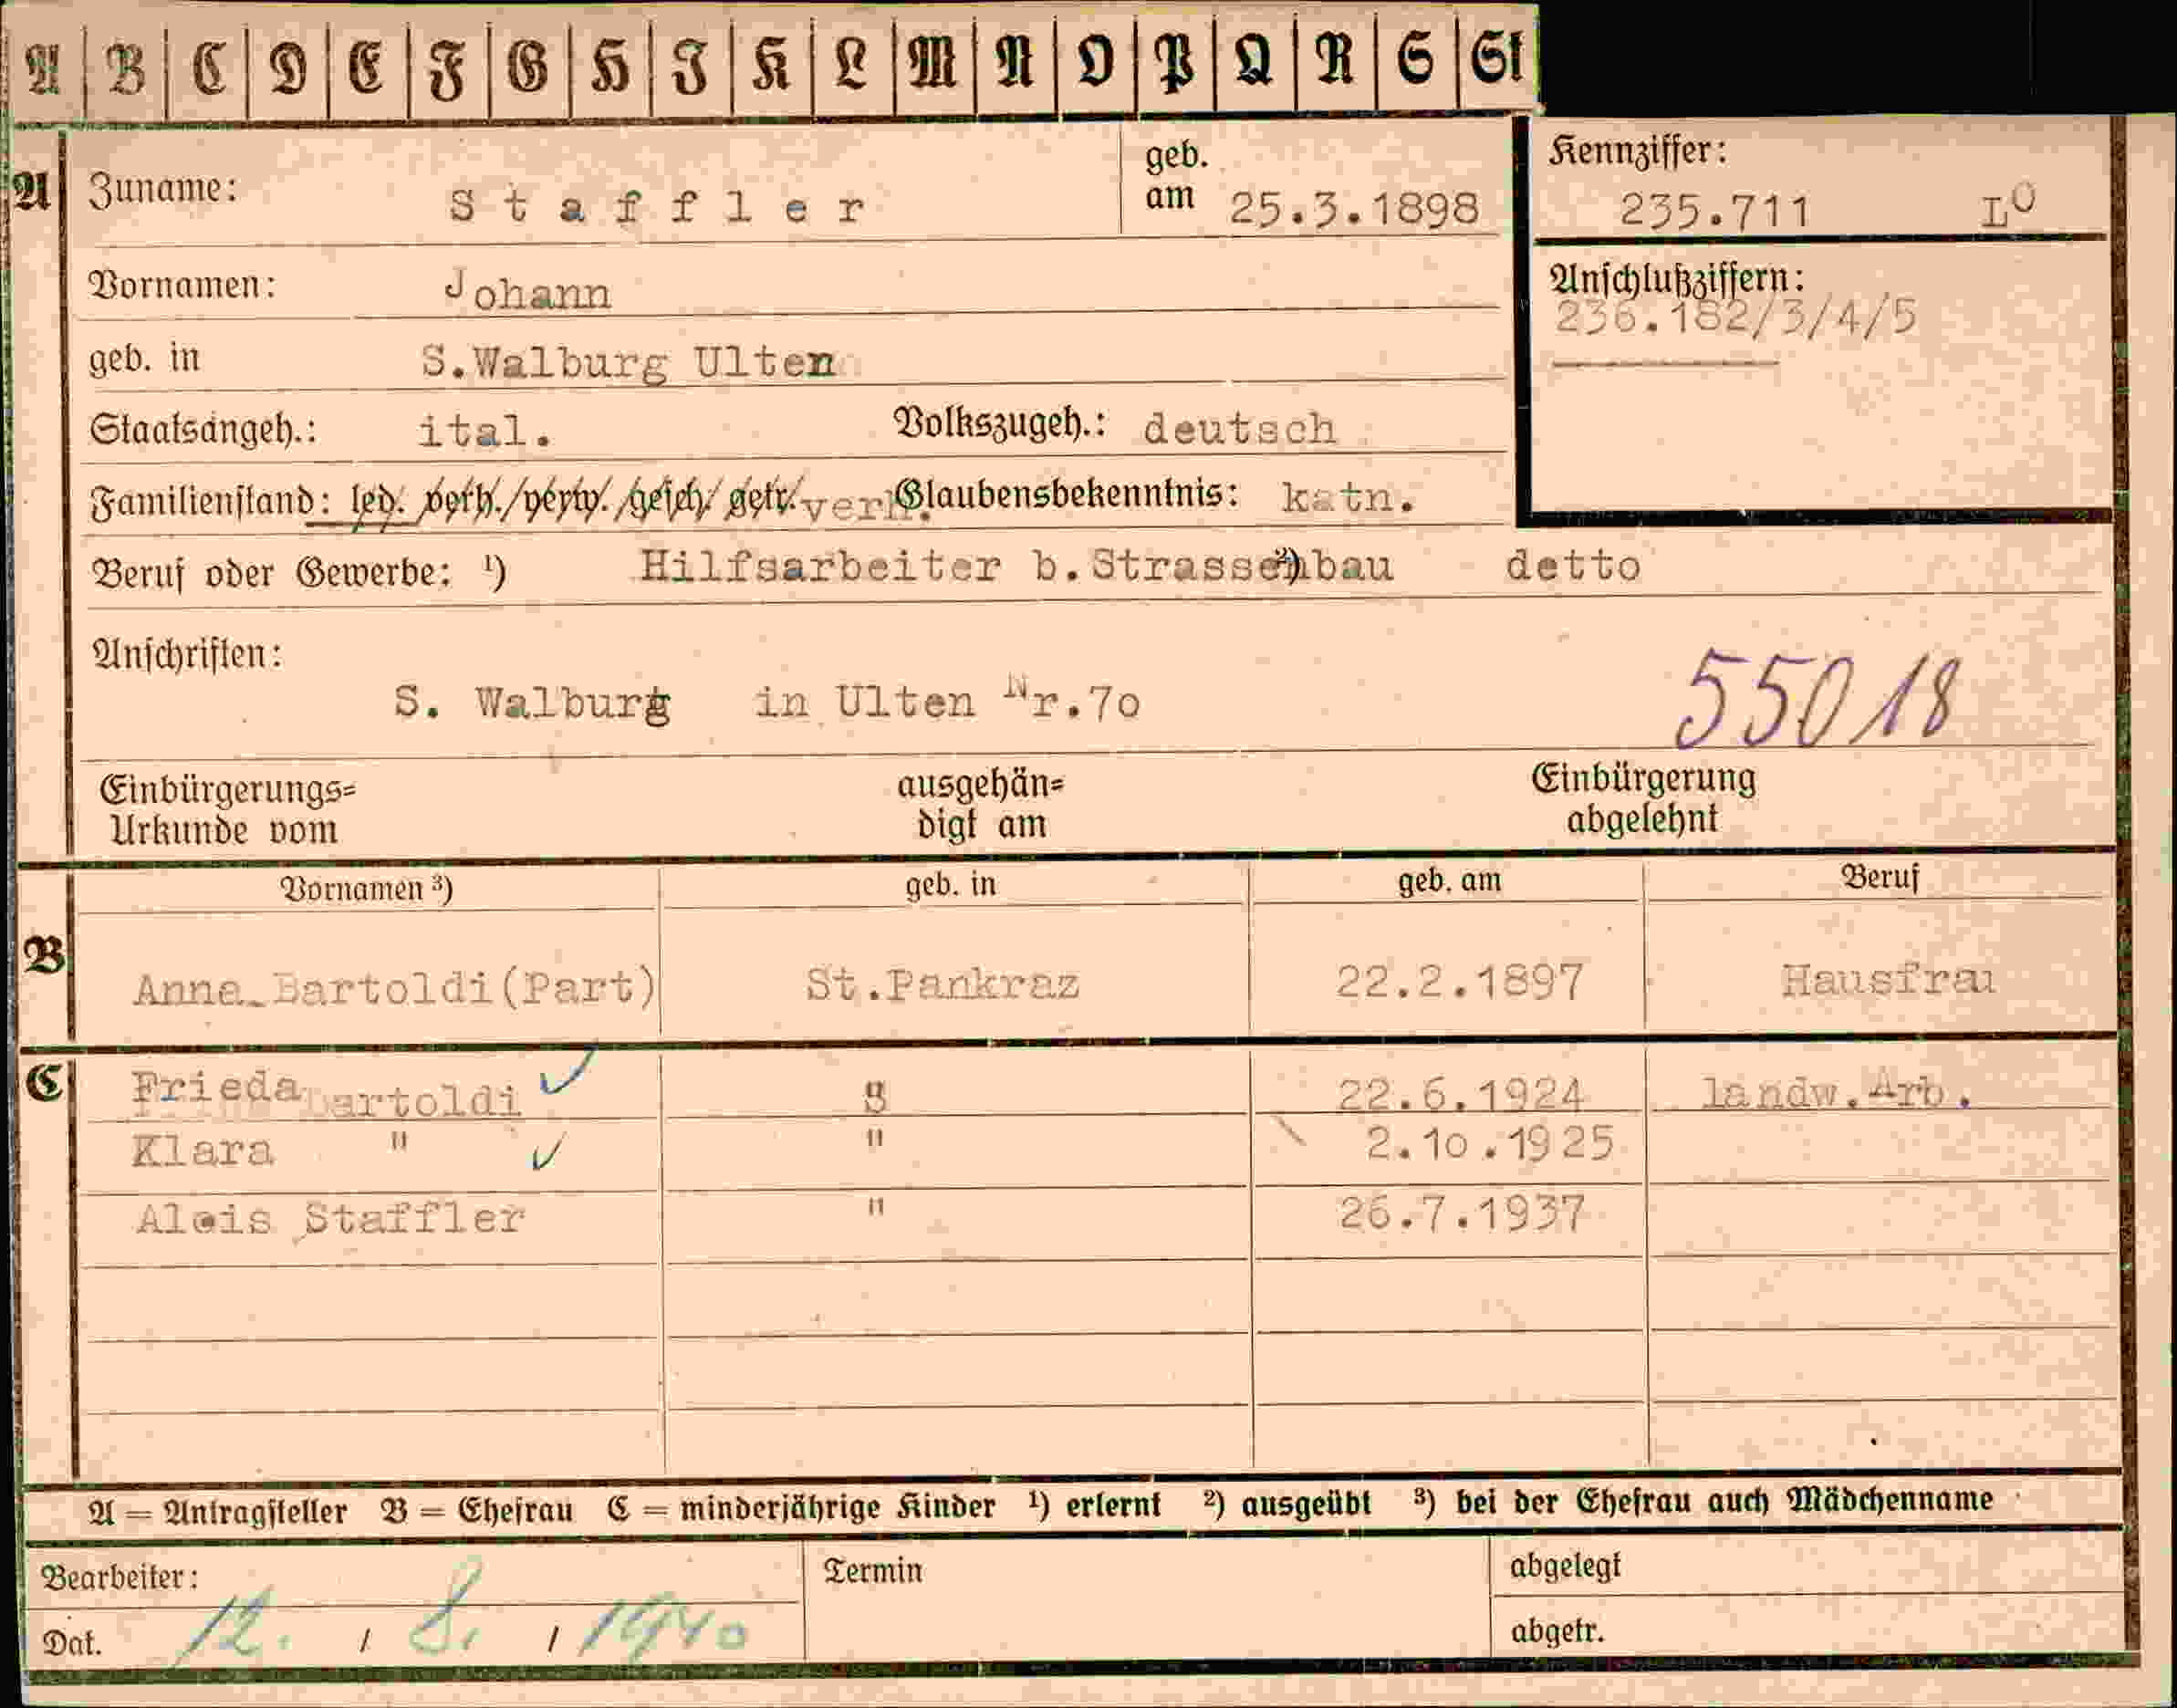 A B C D E F G H I K L M N O P Q R S St
A Zuname: Staffler geb. am 25.3.1898 Kennziffer: 235.711 LO
Vornamen: Johann Anschlußziffern: 236.182/3/4/5
geb. in S.Walburg Ulten
Staatsangeh.: ital. Volkszugeh.: deutsch
Familienstand: led. verh./verw./gesch./getr. verh. Glaubensbekenntnis: katn.
Beruf oder Gewerbe: ¹) Hilfsarbeiter b.Strassenbau ²) detto
Anschriften:
S. Walburg in Ulten Nr.70 55018
Einbürgerungs= ausgehän= Einbürgerung
Urkunde vom digt am abgelehnt
Vornamen ³) geb. in geb. am Beruf
B Anna Bartoldi(Part) St.Pankraz 22.2.1897 Hausfrau
C Frieda Bartoldi " 22.6.1924 landw.Arb.
Klara " " 2.10.1925
Alois Staffler " 26.7.1937
A = Antragsteller B = Ehefrau C = minderjährige Kinder ¹) erlernt ²) ausgeübt ³) bei der Ehefrau auch Mädchenname
Bearbeiter: Termin abgelegt
Dat. 12. / 8. / 1940 abgetr.